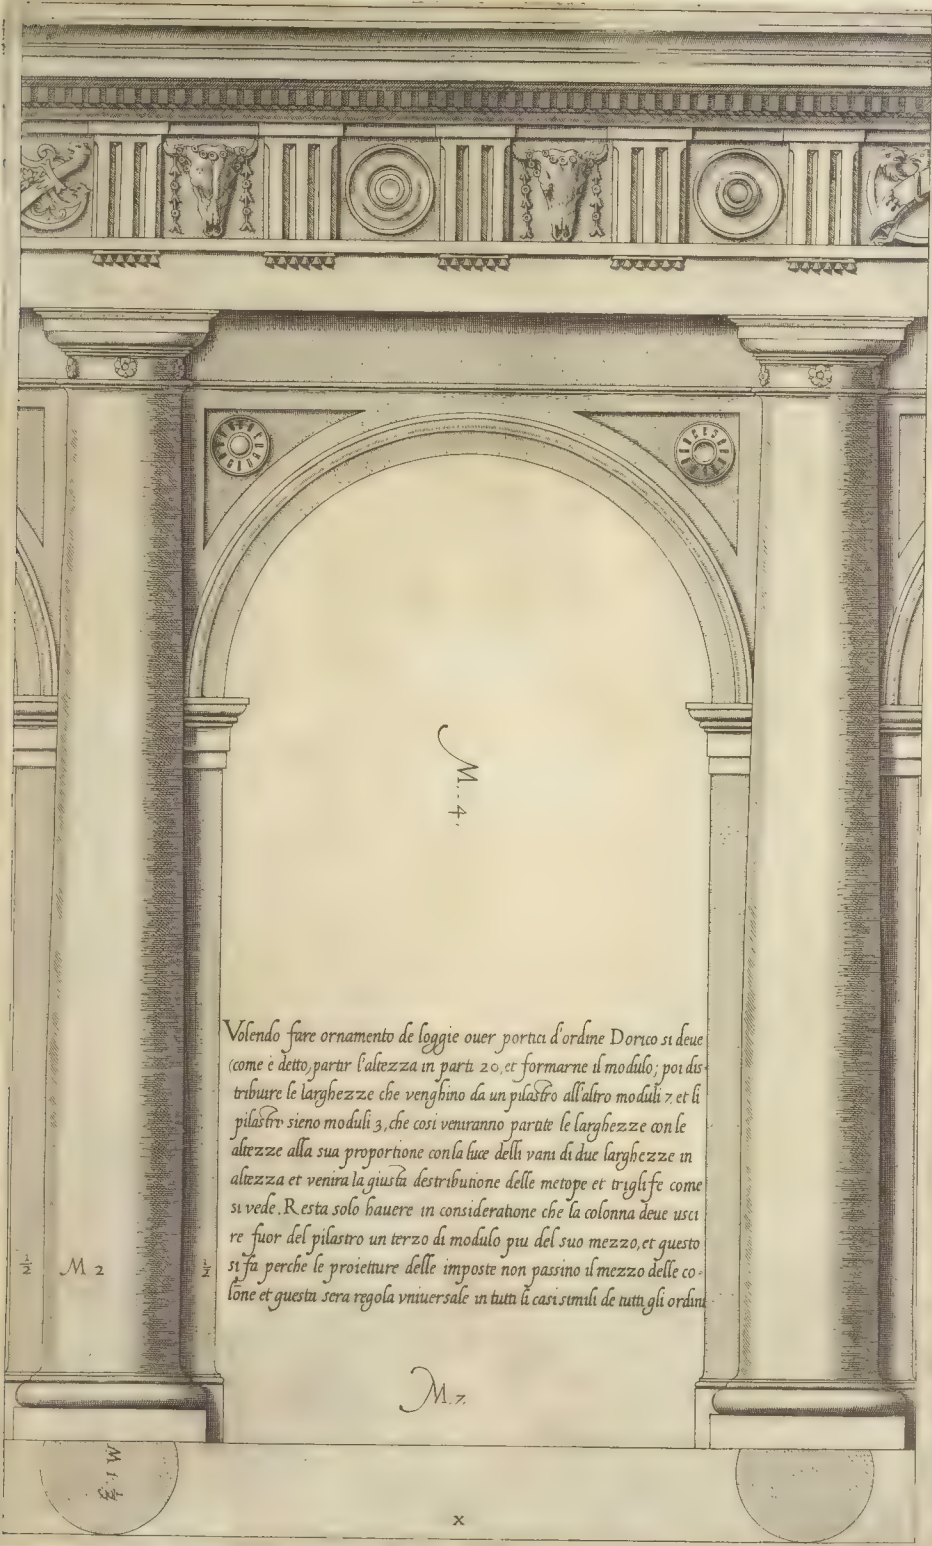 M. 4.
Volendo fare ornamento de loggie ouer portici d'ordine Dorico si deue
(come è detto, partir l'altezza in parti 20, et formarne il modulo; poi dis-
tribuire le larghezze che venghino da un pilastro all'altro moduli 7. et li
pilastri sieno moduli 3, che cosi veniranno partite le larghezze con le
altezze alla sua proportione con la luce delli vani di due larghezze in
altezza et venira la giusta destributione delle metope et triglife come
si vede. Resta solo hauere in consideratione che la colonna deue usci
re fuor del pilastro un terzo di modulo piu del suo mezzo, et questo
si fa perche le proietture delle imposte non passino il mezzo delle co-
lõne et questa sera regola vniuersale in tutti li casi simili de tutti gli ordini
1/2 M 2 1/2
M. 7.
M 1.
X